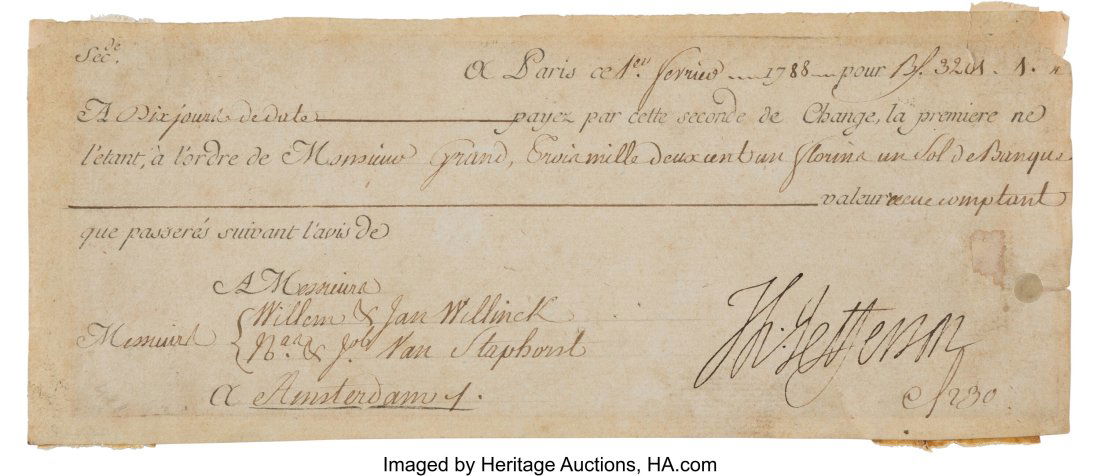 Sec.de
A Paris ce 1.er fevrier 1788 pour Bf. 3201. 1. "
A Dix jours de date payez par cette seconde de Change, la premiere ne
l'étant, à l'ordre de Monsieur Grand, Trois mille deux cent un florins un Sol de Banque
valeur recue comptant
que passerés suivant l'avis de
A Messieurs
Messieurs { Willem & Jan Willinck
N.as & Jb Van Staphorst
A Amsterdam /.
Th: Jefferson
230
Imaged by Heritage Auctions, HA.com